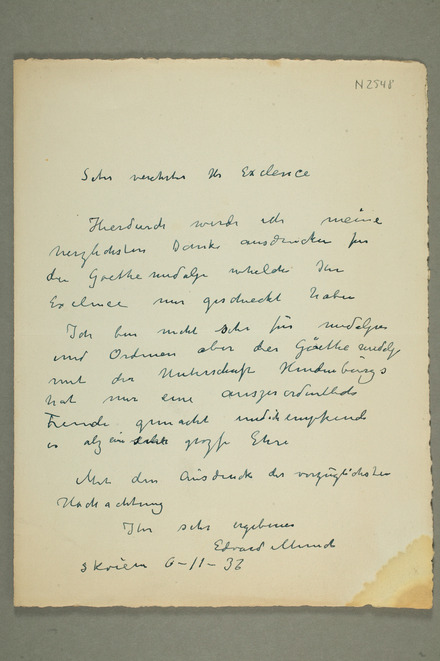 N 2548
Sehr verehrter Hr Exclence
Hierdurch werde ich meine
herzlichsten Danke ausdrücken für
die Goethe medalje whelche Ihr
Exelnce mir geschickt haben
Ich bin nicht sehr für medaljer
und Ordnen aber der Göethe medalje
mit der Unterschrift Hindenburgs
hat mir eine auszerordentliche
Freude gemacht und ich empfinde
es alz ein grosse Ehre
Mit den Ausdruck der vorzüglichsten
Hochachtung
Ihr sehr ergebener
Edvard Munch
Skøien 6-11-32